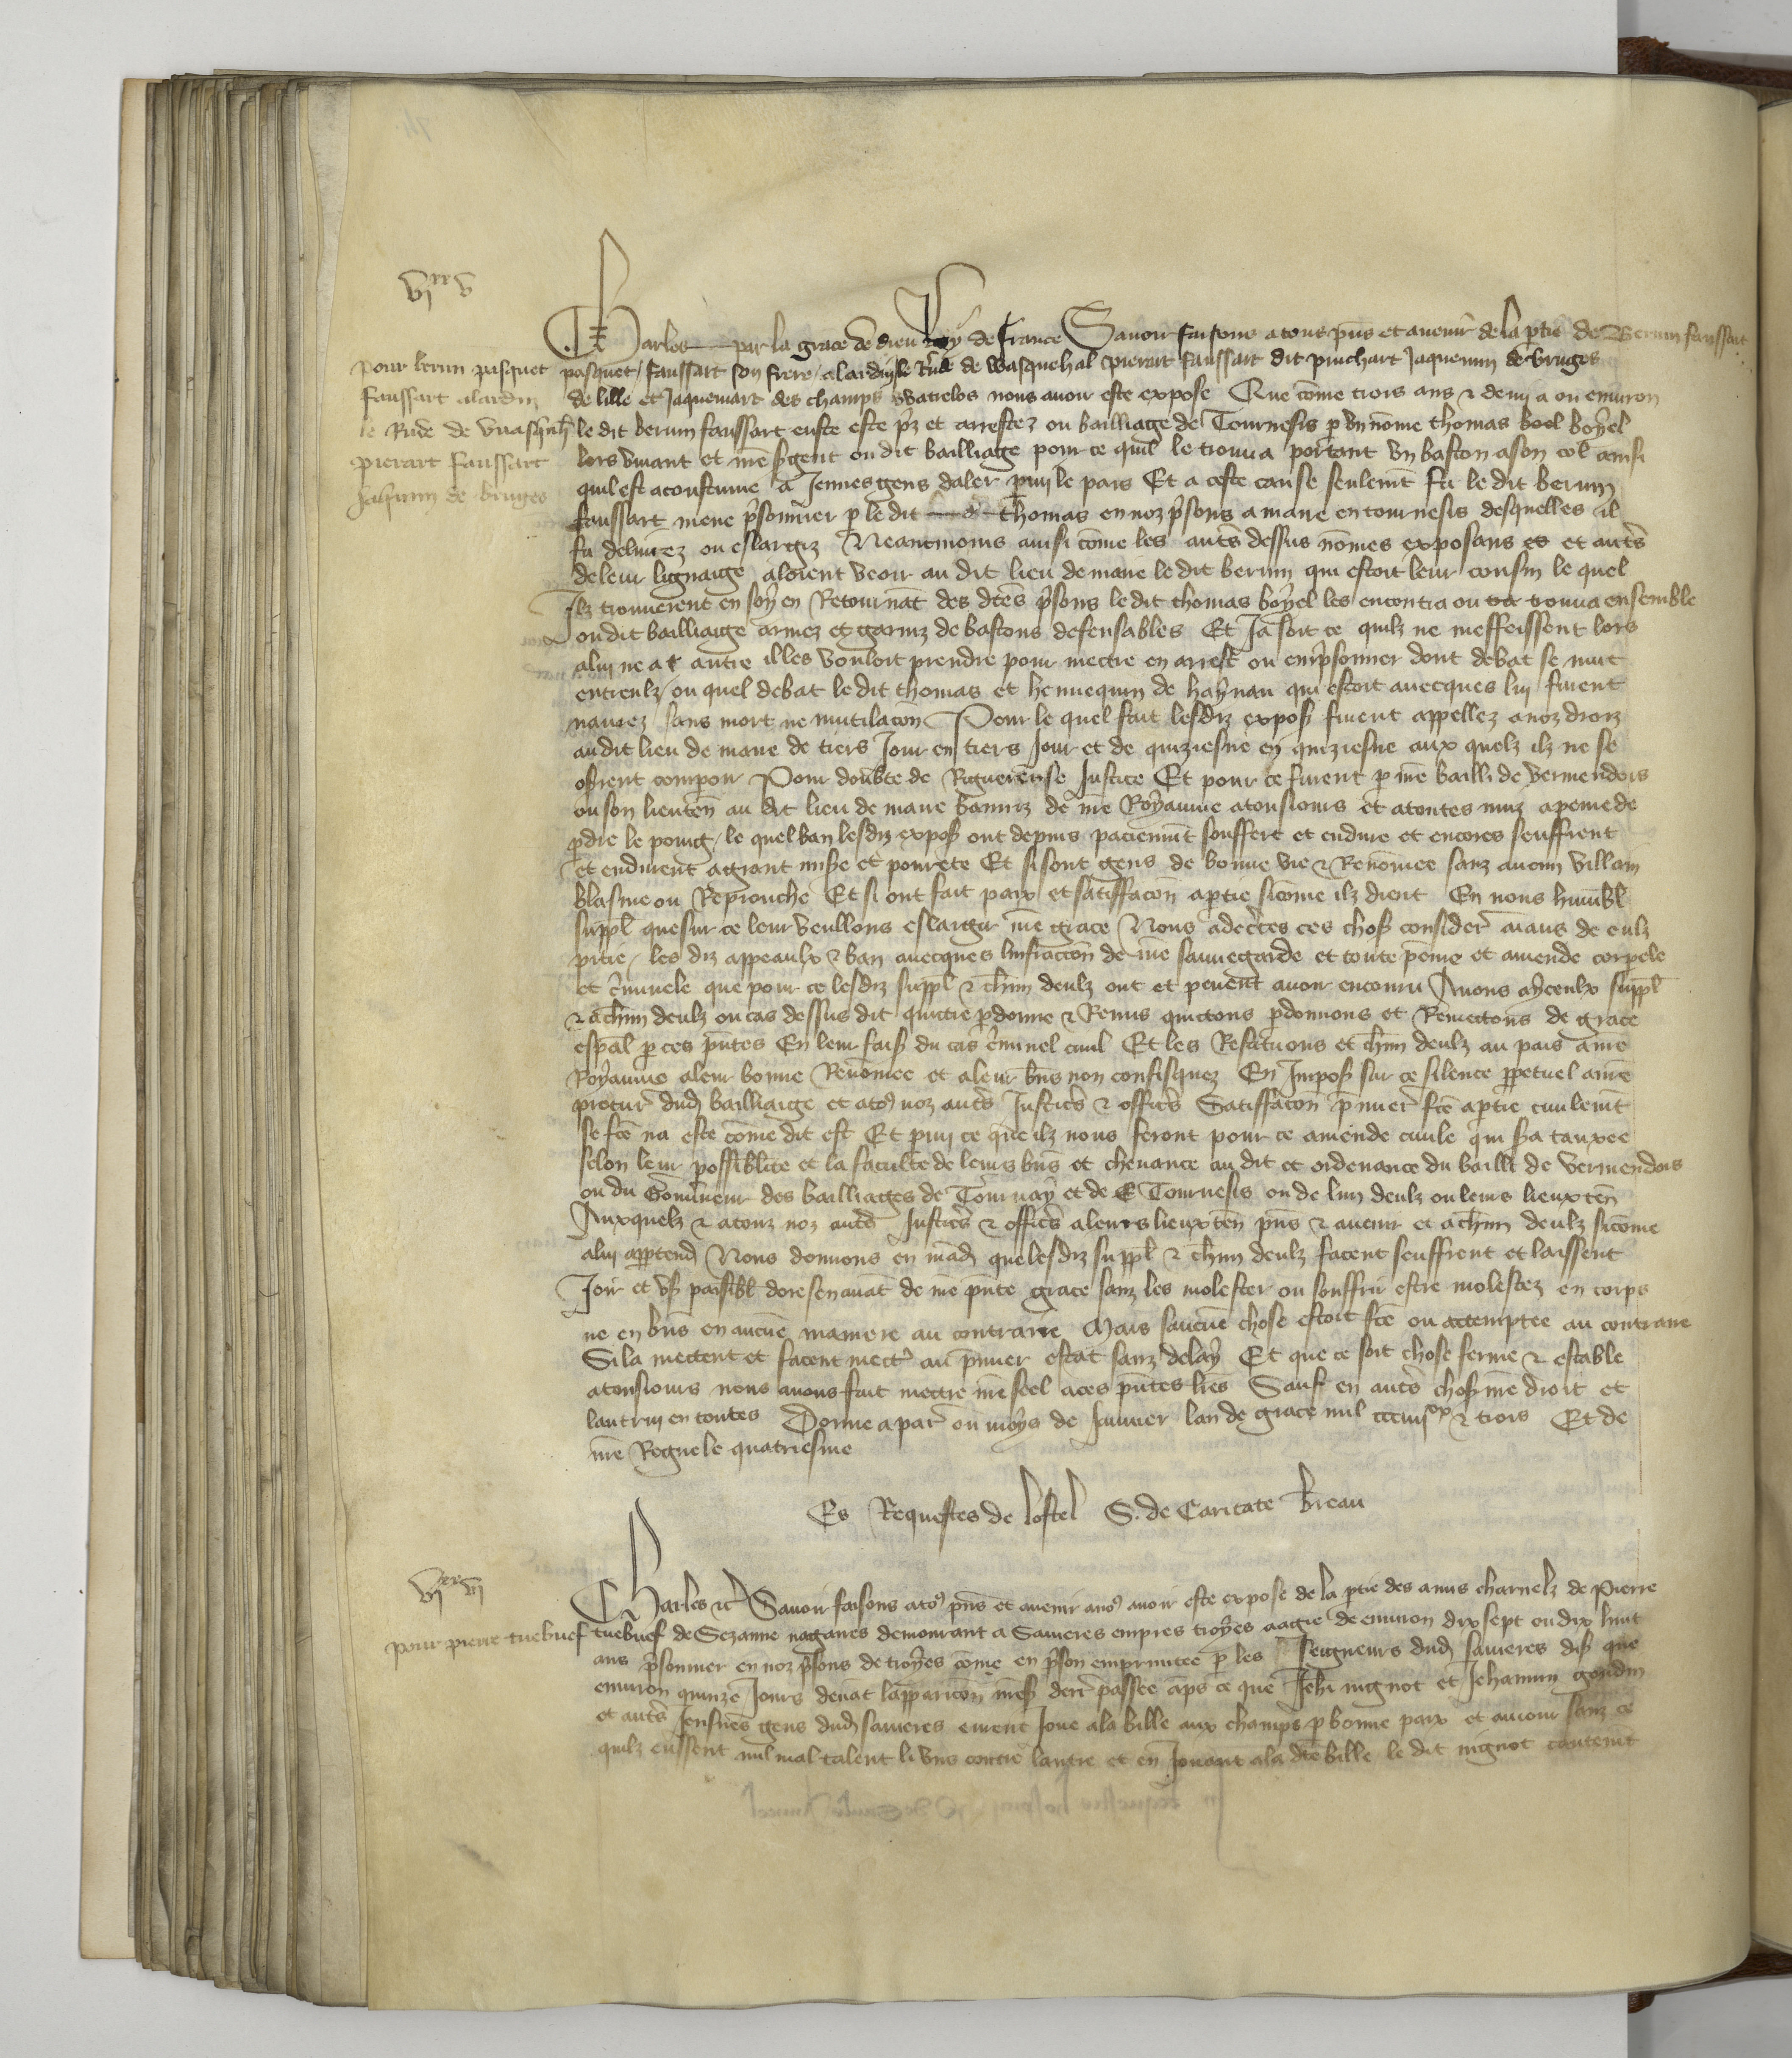 vixx v
Pour berun pasquet
Faussart alardin
le Rude de Wasqnh̄
pierart Faussart
Jaq̄min de bruges
Charles par la grace de dieu Roy de France Savoir faisons a touz pn̄s et avenir de la p̄tie de Berun faussart
pasquet faussart son frere alardin le Rude de Wasquehal pierart faussart dit pinchart Jaquemin de bruges
de lille et Jaquemart des champs Watrelos nous avoir este expose Que cōme trois ans & demi a ou environ
le dit berun faussart eust este p̄z et arrestez ou bailliage de Tournesis p vn nōme thomas boel boyel
lors vivant et nr̄e s̄gent ou dit bailliage pour ce quil le trouva portant vn baston a son col ainsi
quil est acoustume a Jennes gens daler p̄mi le pais Et a ceste cause seulemt̄ fu le dit berun
faussart mene p̄sonnier p le dit thomas en noz p̄sons a maire en tournesis desquelles il
fu delivrez ou eslargiz Neantmoins ainsi cōme les autr̄s dessus nōmes exposans et autr̄s
de leur lignaige aloient veoir au dit lieu de maire le dit berun qui estoit leur cousin le quel
Ilz trouverent en soy en Retournāt des dc̄es p̄sons le dit thomas boyel les encontra ou trouva ensemble
ou dit bailliaige armez et garniz de bastons defensables Et Ja soit ce quilz ne meffeissent lors
a lui ne a autre il les vouloit prendre pour mectre en arrest ou emp̄sonner dont debat se mut
entreulz / ou quel debat le dit thomas et hennequin de haynau qui estoit avecques lui furent
navrez sans mort ne mutilacōn Pour le quel fait lesdiz expos̄ furent appellez a noz drois
audit lieu de maire de tiers Jour en tiers Jour et de quizesne en quizesne aux quelz ilz ne se
oserent comparoir Pour doubte de Rigueureuse Justice Et pour ce furent p nr̄e bailli de vermendois
ou son lieuten̄ au dit lieu de maire banniz de nr̄e Royaume a tousiours et a toutes nuiz a peine de
p̄dre le poing / le quel ban lesdiz expos̄ ont depuis paciemmt̄ souffert et endure et encores seuffrent
et endurent a grant mis̄e et povrete Et si sont gens de bonne vie & Renōmee sanz aucun villain
blasme ou Reprouche Et si ont fait paix et satiffacōn a p̄tie sicōme ilz dient En nous humbl̄
suppl̄ que sur ce leur veullons eslargir nr̄e grace Nous adec̄tes ces chos̄ consider̄ aians de eulz
pitie / les diz appeaulx & ban avecques linfraccōn de nr̄e sauvegarde et toute peine et amende corpele
et c̄minele que pour ce lesdiz suppl̄ & ch̄m deulz ont et peuent avoir encouru Avons a yceulx suppl̄
& a ch̄m deulz ou cas dessus dit quictie p̄donne & Remis quictons p̄donnons et Remectons de grace
esp̄al p ces pn̄tes En leur fais̄ du cas c̄minel civil Et les Restituons et ch̄m deulz au pais a nr̄e
Royaume a leur bonne Renōmee et a leur bn̄s non confisquez En Impos̄ sur ce silence p̄petuel a nr̄e
procur̄ dud̄ bailliaige et a toꝰ noz autr̄s Justic̄s & offic̄s Satiffacōn p̄mier̄ fc̄e a p̄tie civilemt̄
se fc̄e na este cōme dit est Et p̄mi ce que ilz nous feront pour ce amende civile qui s̄a tauxee
selon leur possiblite et la faculte de leurs bn̄s et chevance au dit et ordenance du bailli de vermendois
ou du Gouv̄neur des bailliages de Tournay et de Tournesis ou de lun deulz ou leurs lieux ten̄
Auxquelz & a touz noz autr̄s Justic̄s & offic̄s a leurs lieux ten̄ pn̄s & avenir et a ch̄m deulz sicōme
a lui app̄tend̄ Nous donnons en mad̄ que lesdiz suppl̄ & ch̄m deulz facent seuffrent et laissent
Joir et vs̄ paisibl̄ doresenavāt de nr̄e pn̄te grace sanz les molester ou souffrir estre molestez en corps
ne en bn̄s en aucūe maniere au contraire Mais saucūe chose estoit fc̄e ou actemptee au contraire
Si la mectent et facent mectr̄ au p̄mier estat sanz delay Et que ce soit chose ferme & estable
a tousiours nous avons fait mectre nr̄e seel a ces pn̄tes lr̄es Sauf en autr̄s chos̄ nr̄e droit et
lautrui en toutes Donne a par̄ ou moys de Janvier lan de grace mil ccciiiixx & trois Et de
nr̄e Regne le quatriesme
Es Requestes de lostel S. de Caritate Breau
vixx vi
pour pierre tuebuef
Charles &c̄ Savoir faisons a toꝰ pn̄s et avenir a noꝰ avoir este expose de la p̄tie des amis charnelz de Pierre
tuebuef de Sezanne nagaires demourant a Savieres empres troyes aagie de environ dix sept ou dix huit
ans p̄sonnier en noz p̄sons de troyes cōme en p̄son empruntee p les seigneurs dud̄ savieres dis̄ que
environ quinze Jours devāt lapparicōn nr̄es̄ derr̄ passee ap̄s ce que Jeh̄ nignot et Jehannin goudin
et autr̄s Jensnes gens dud̄ savieres eurent Joue a la bille aux champs p bonne paix et amour sanz ce
quilz eussent nul mal talent li vns contre lautre et en Jouant a la dc̄e bille le dit nignot contenit